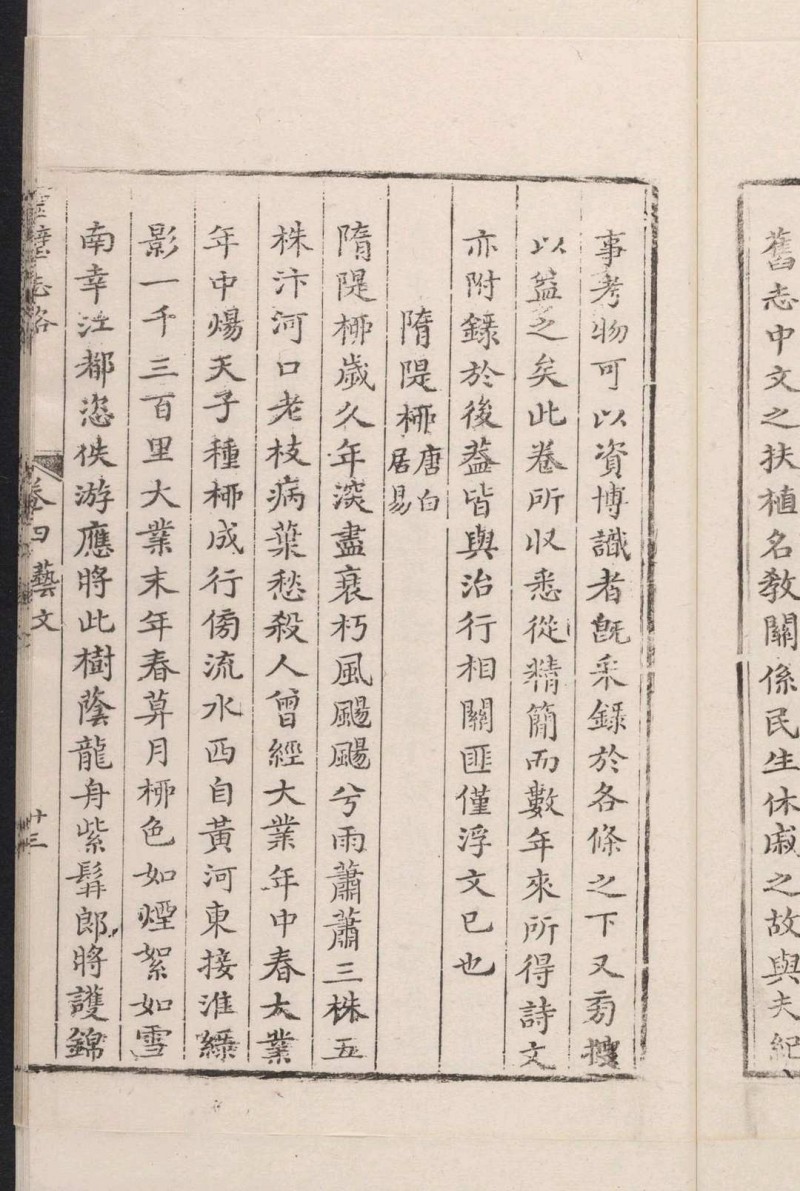 舊志中文之扶植名敎關係民生休戚之故與夫紀
事考物可以資博識者旣采錄於各條之下又旁搜
以益之矣此卷所收悉從精簡而數年來所得詩文
亦附錄於後葢皆與治行相關匪僅浮文已也
隋隄桺唐白居易
隋隄桺歲久年深盡衰朽風颸颸兮雨蕭蕭三株五
株汴河口老枝病葉愁殺人曾經大業年中春大業
年中煬天子種桺成行傍流水西自黃河東接淮綠
影一千三百里大業末年春算月桺色如煙絮如雪
南幸江都恣佚游應將此樹蔭龍舟紫髯郎將護錦
靈璧志略
卷四藝文
十三